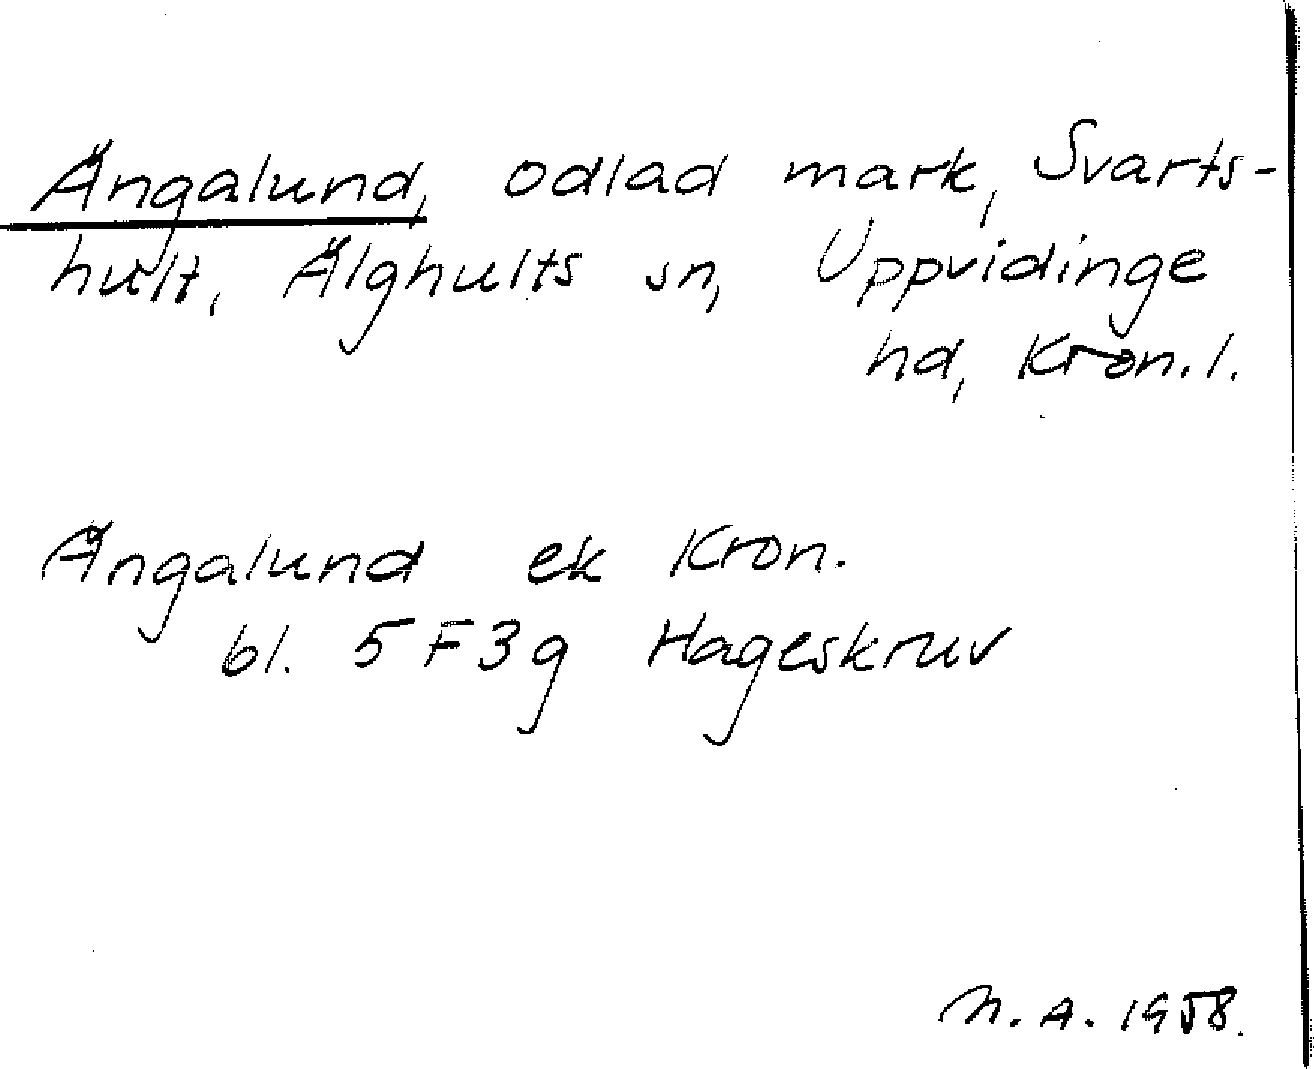 Ängalund, odlad mark, Svarts-
hult, Älghults sn, Uppvidinge
hd, Kron. l.
Ängalund ek Kron.
bl. 5F3g Hageskruv
N. A. 1958.